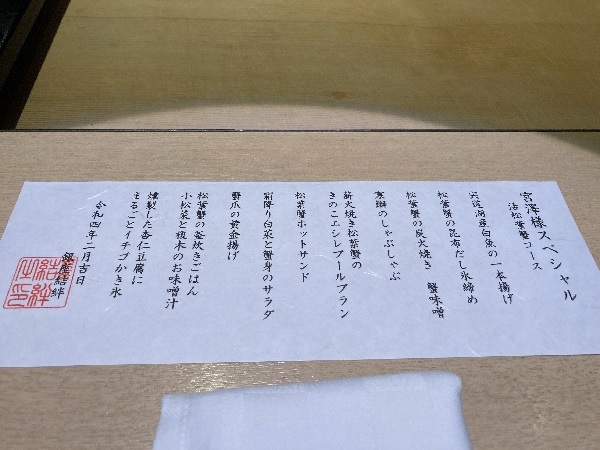 宮澤様スペシャル
活松葉蟹コース
宍道湖産白魚の一本揚げ
松葉蟹の昆布だし氷締め
松葉蟹の炭火焼き　蟹味噌
寒鰤のしゃぶしゃぶ
薪火焼き松葉蟹の
きのこエシレブールブラン
松葉蟹ホットサンド
霜降り白菜と蟹身のサラダ
蟹爪の黄金揚げ
松葉蟹の釜炊きごはん
小松菜と榎木のお味噌汁
燻製した杏仁豆腐に
まるごとイチゴかき氷
令和四年二月吉日
銀座結絆